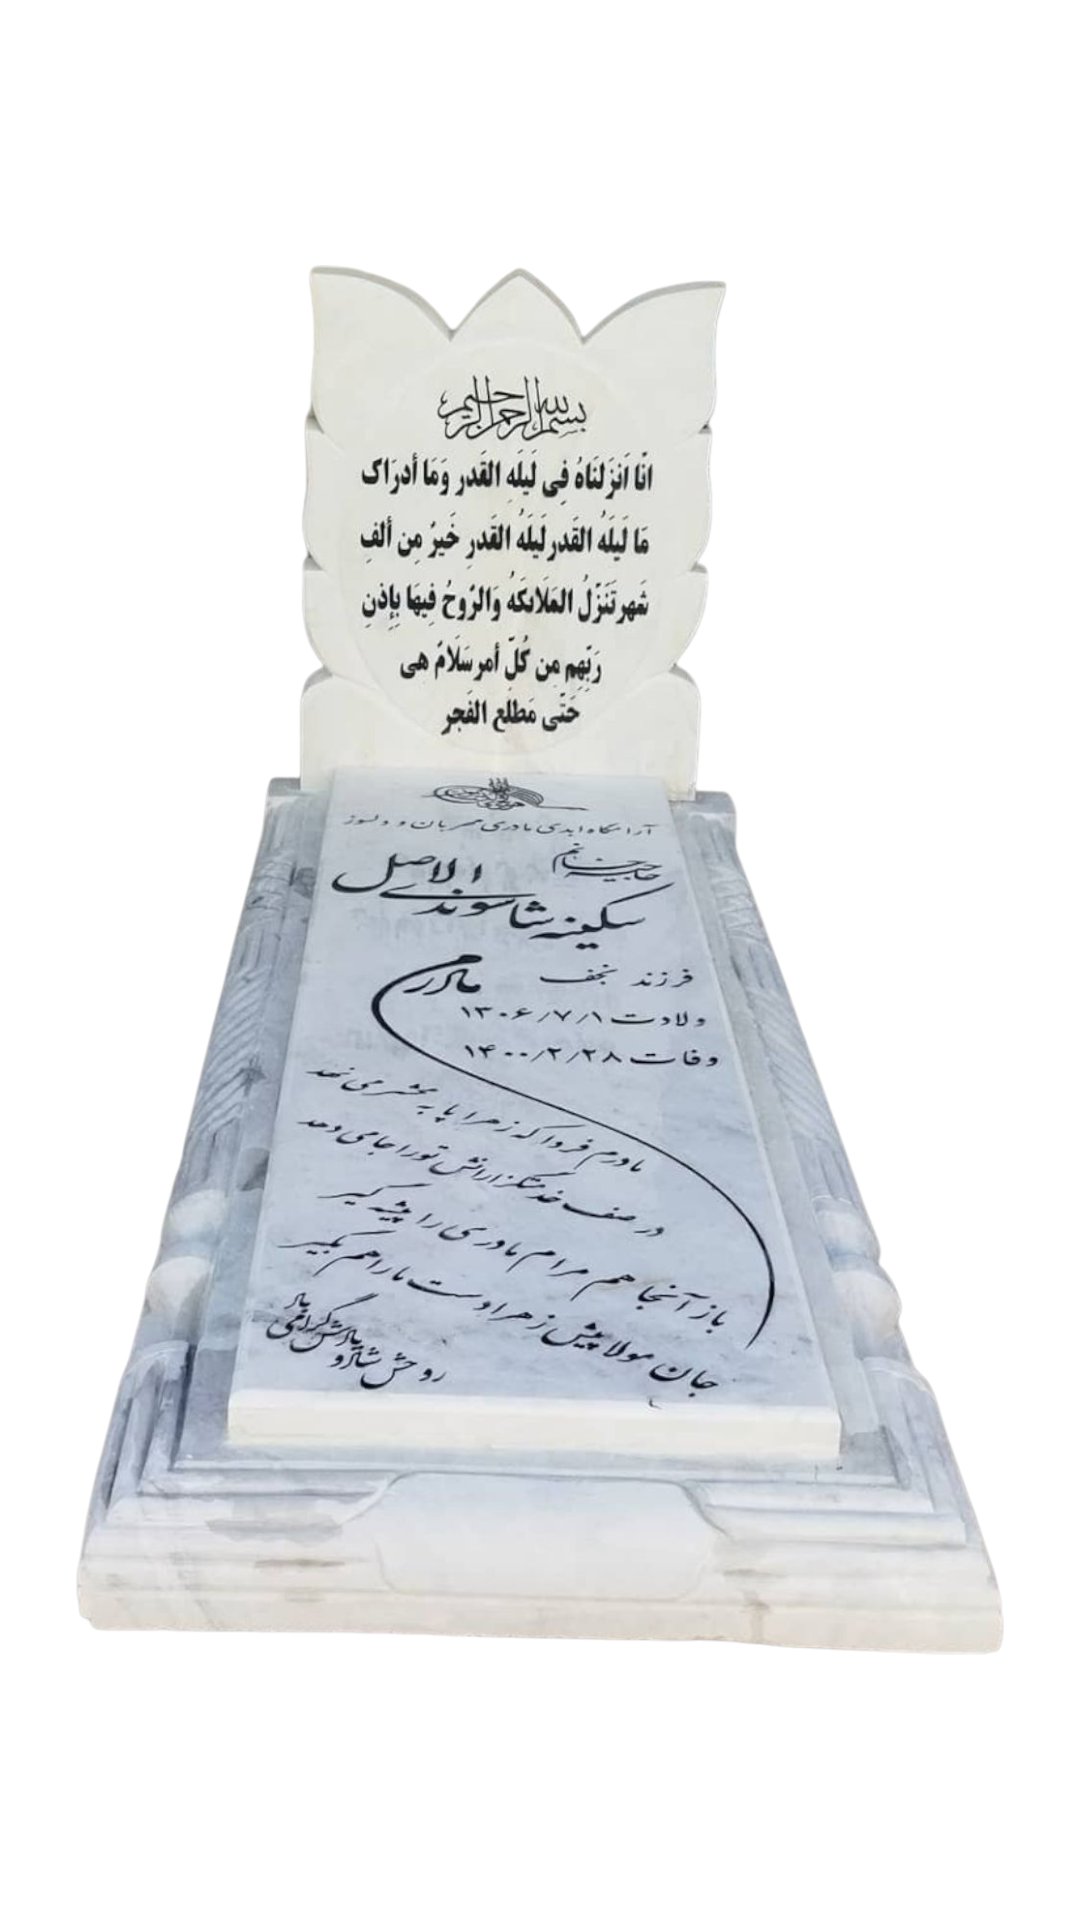 بسم الله الرحمن الرحیم
انّا اَنزَلنَاهُ فِی لَیلَهِ القَدر وَمَا أدرَاک
مَا لَیلَهُ القَدرلَیلَهُ القَدرِ خَیرٌ مِن ألفِ
شَهرتَنَزّلُ المَلَائکَهُ وَالرّوحُ فِیهَا بِإِذنِ
رَبّهِم مِن کُلّ أمرسَلَامٌ هی
حَتّی مَطلَعِ الفَجر
آرامگاه ابدی مادری مهربان و دلسوز
حاجیه خانم
سکینه شاسوندی الاصل
فرزند نجف
مادرم
ولادت ۱۳۰۶/۷/۱
وفات ۱۴۰۰/۲/۲۸
مادرم فردا که زهرا پا به محشر می نهد
در صف خدمتگزارانش تورا جا می دهد
باز آنجا هم مرام مادری را پیشه گیر
جان مولا پیش زهرا دست ما را هم بگیر
روحش شاد و یادش گرامی باد